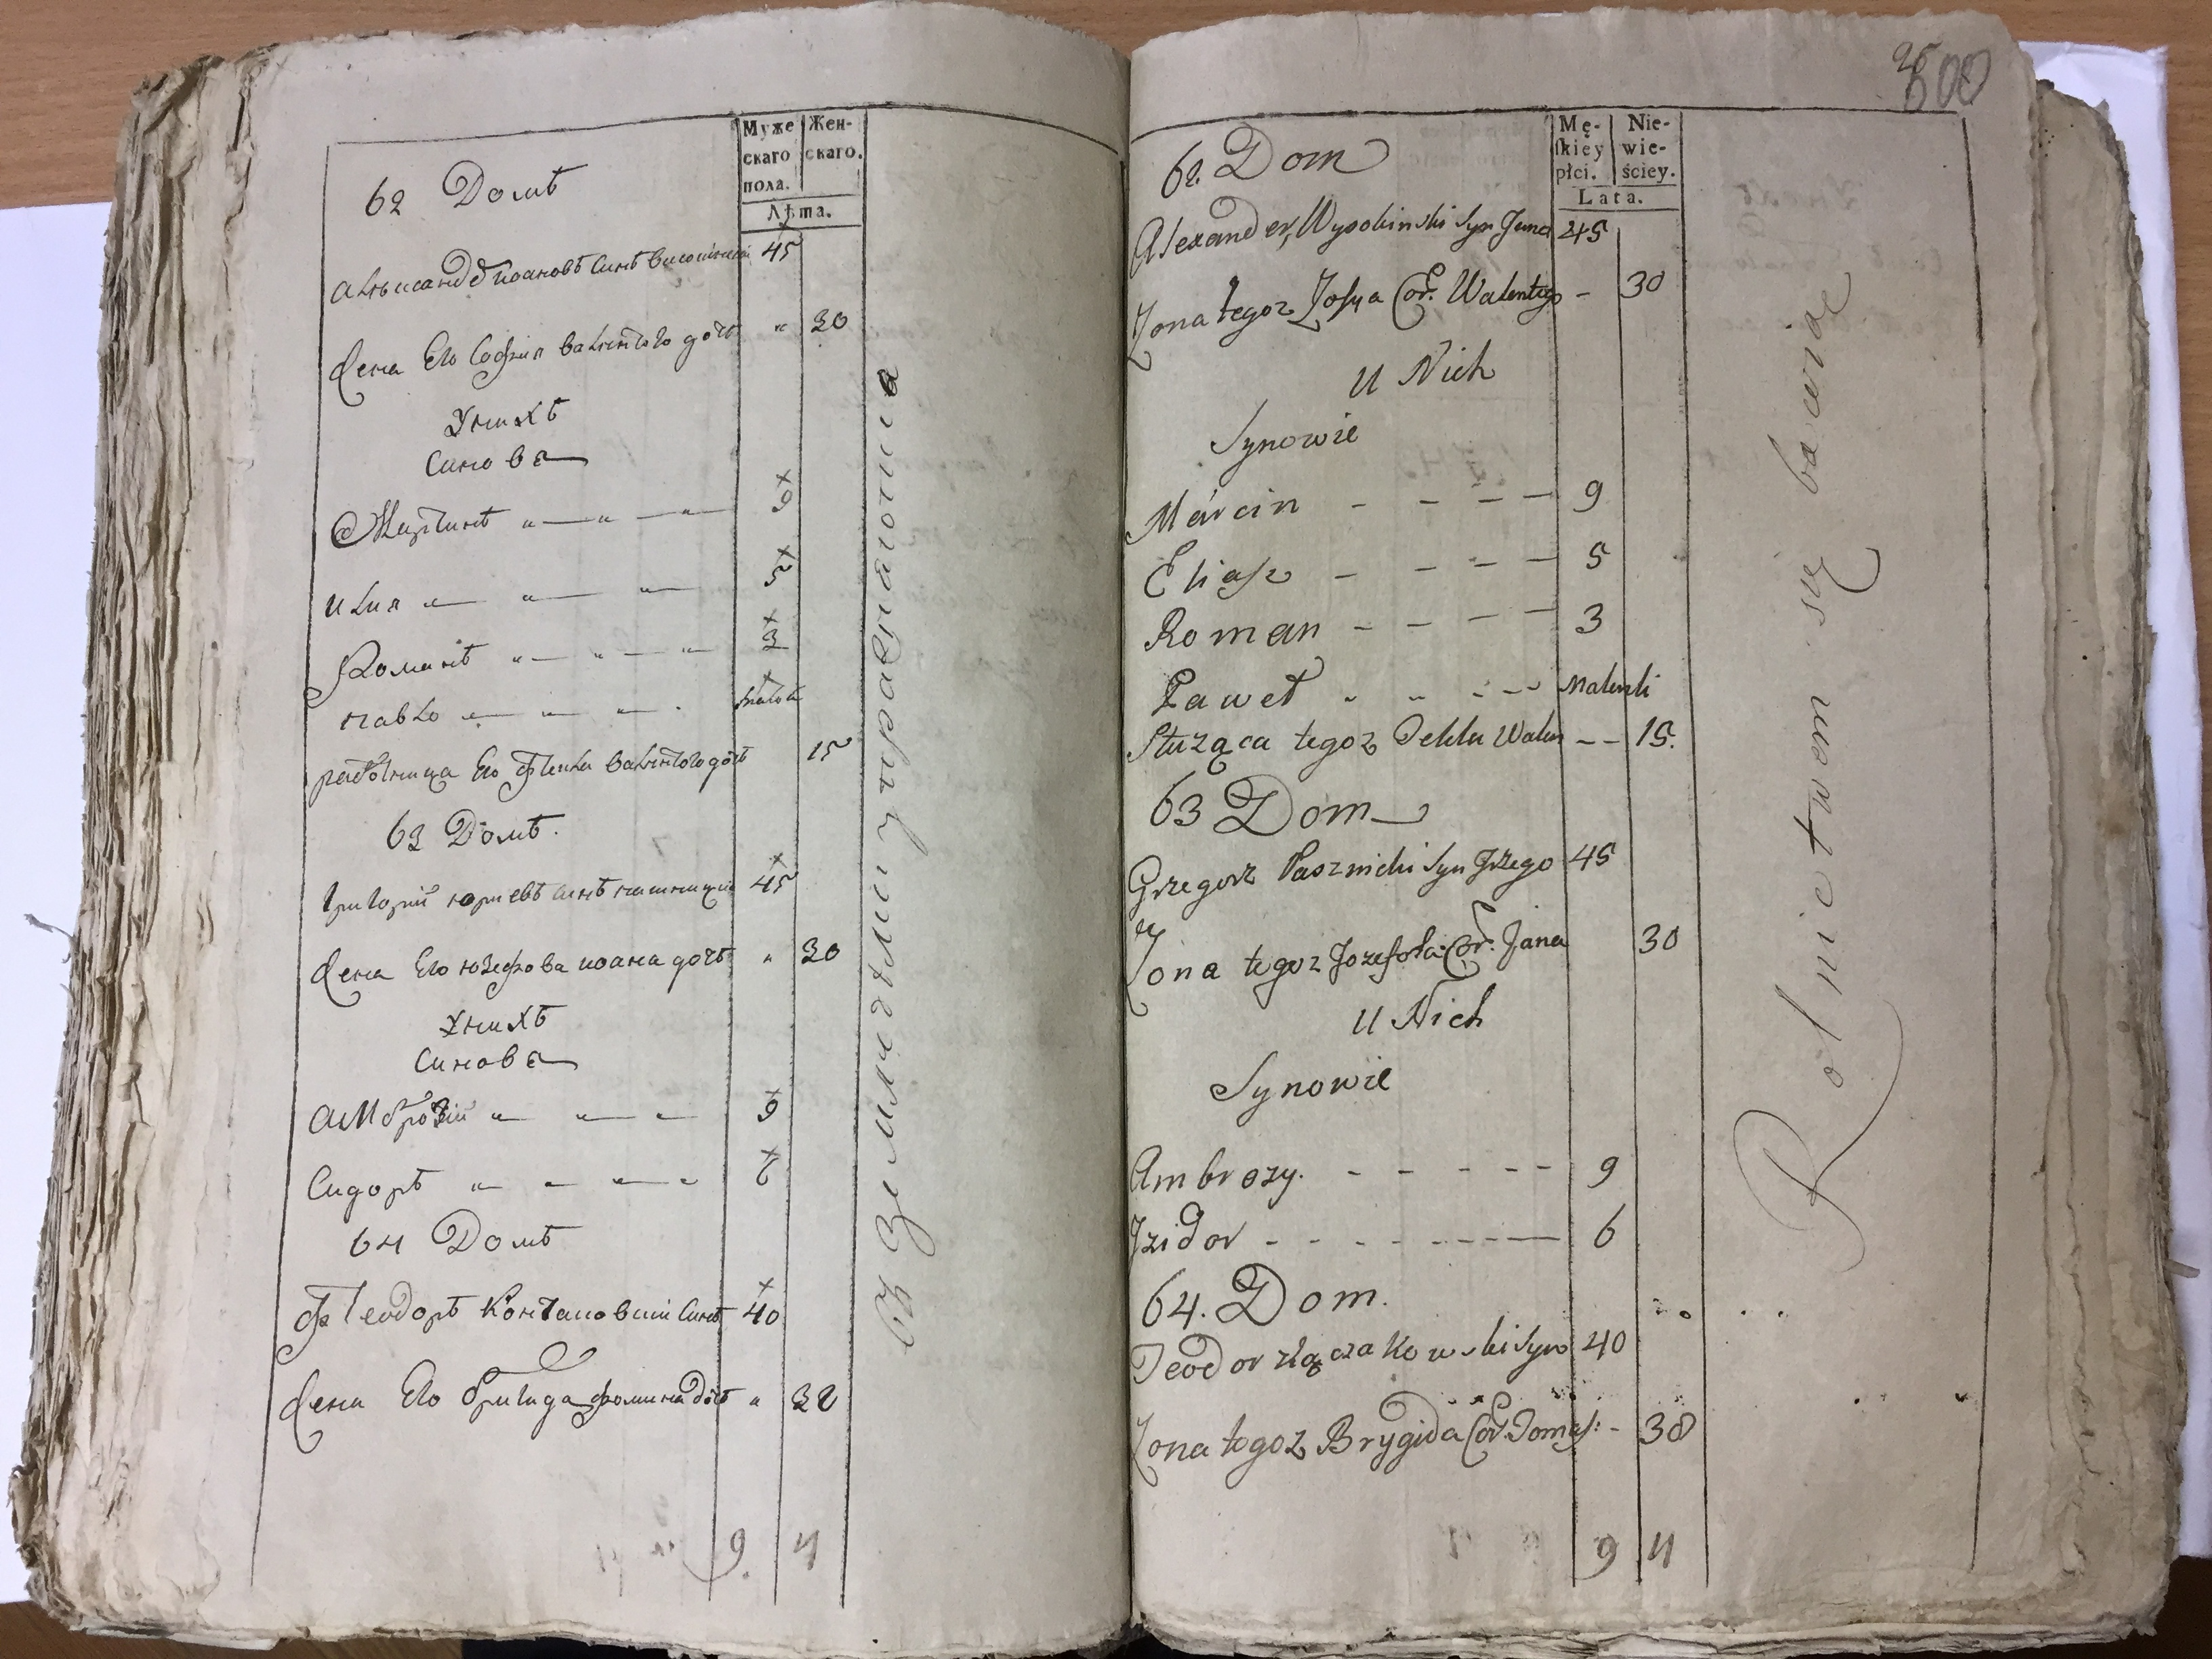 Муже
скаго
пола.
Жен-
скаго.
Лѣта.
62 Домъ
Александеръ Иоановъ Синъ 45
Жена Его София валентого дочъ " 30
Унихъ
Синове
Мартинъ " — " — " — 9
Илия " — " — " — 5
Романъ " — " — " 3
Павло " — " — " —
работница Его валентого дочъ 15
63 Домъ.
Григорий юриевъ Синъ 45
Жена Его юзефова иоана дочъ " 30
Унихъ
Синове
Амброзий " — " — " — 9
Сидоръ " — " — " — " 6
64 Домъ
Синъ 40
Жена Его Бригида фомина дочъ "
9. 4
въ земледѣлии упраѳнаютца
95
500
Mę-
skiey
płci.
Nie-
wie-
ściey.
Lata.
62. Dom
Alexander Wysokinski Syn Jana 45
Zona tegoz Zofya Cor. Walentego - 30
U Nich
Synowie
Marcin - - - - 9
Eliasz - - - - 5
Roman - - - - 3
Paweł - - - - Malenki
Słuząca tegoz Tekla Walen - - 15.
63 Dom
Grzegorz Pasznicki Syn Jrzego 45
Zona tegoz Jozefota Cor. Jana 30
U Nich
Synowie
Ambrozy. - - - - - 9
Jzidor - - - - - - - 6
64. Dom.
Teodor Syn 40
Zona togoz Brygida Cor. Tomasz: - 38
9 4
Rolnictwem się bawią